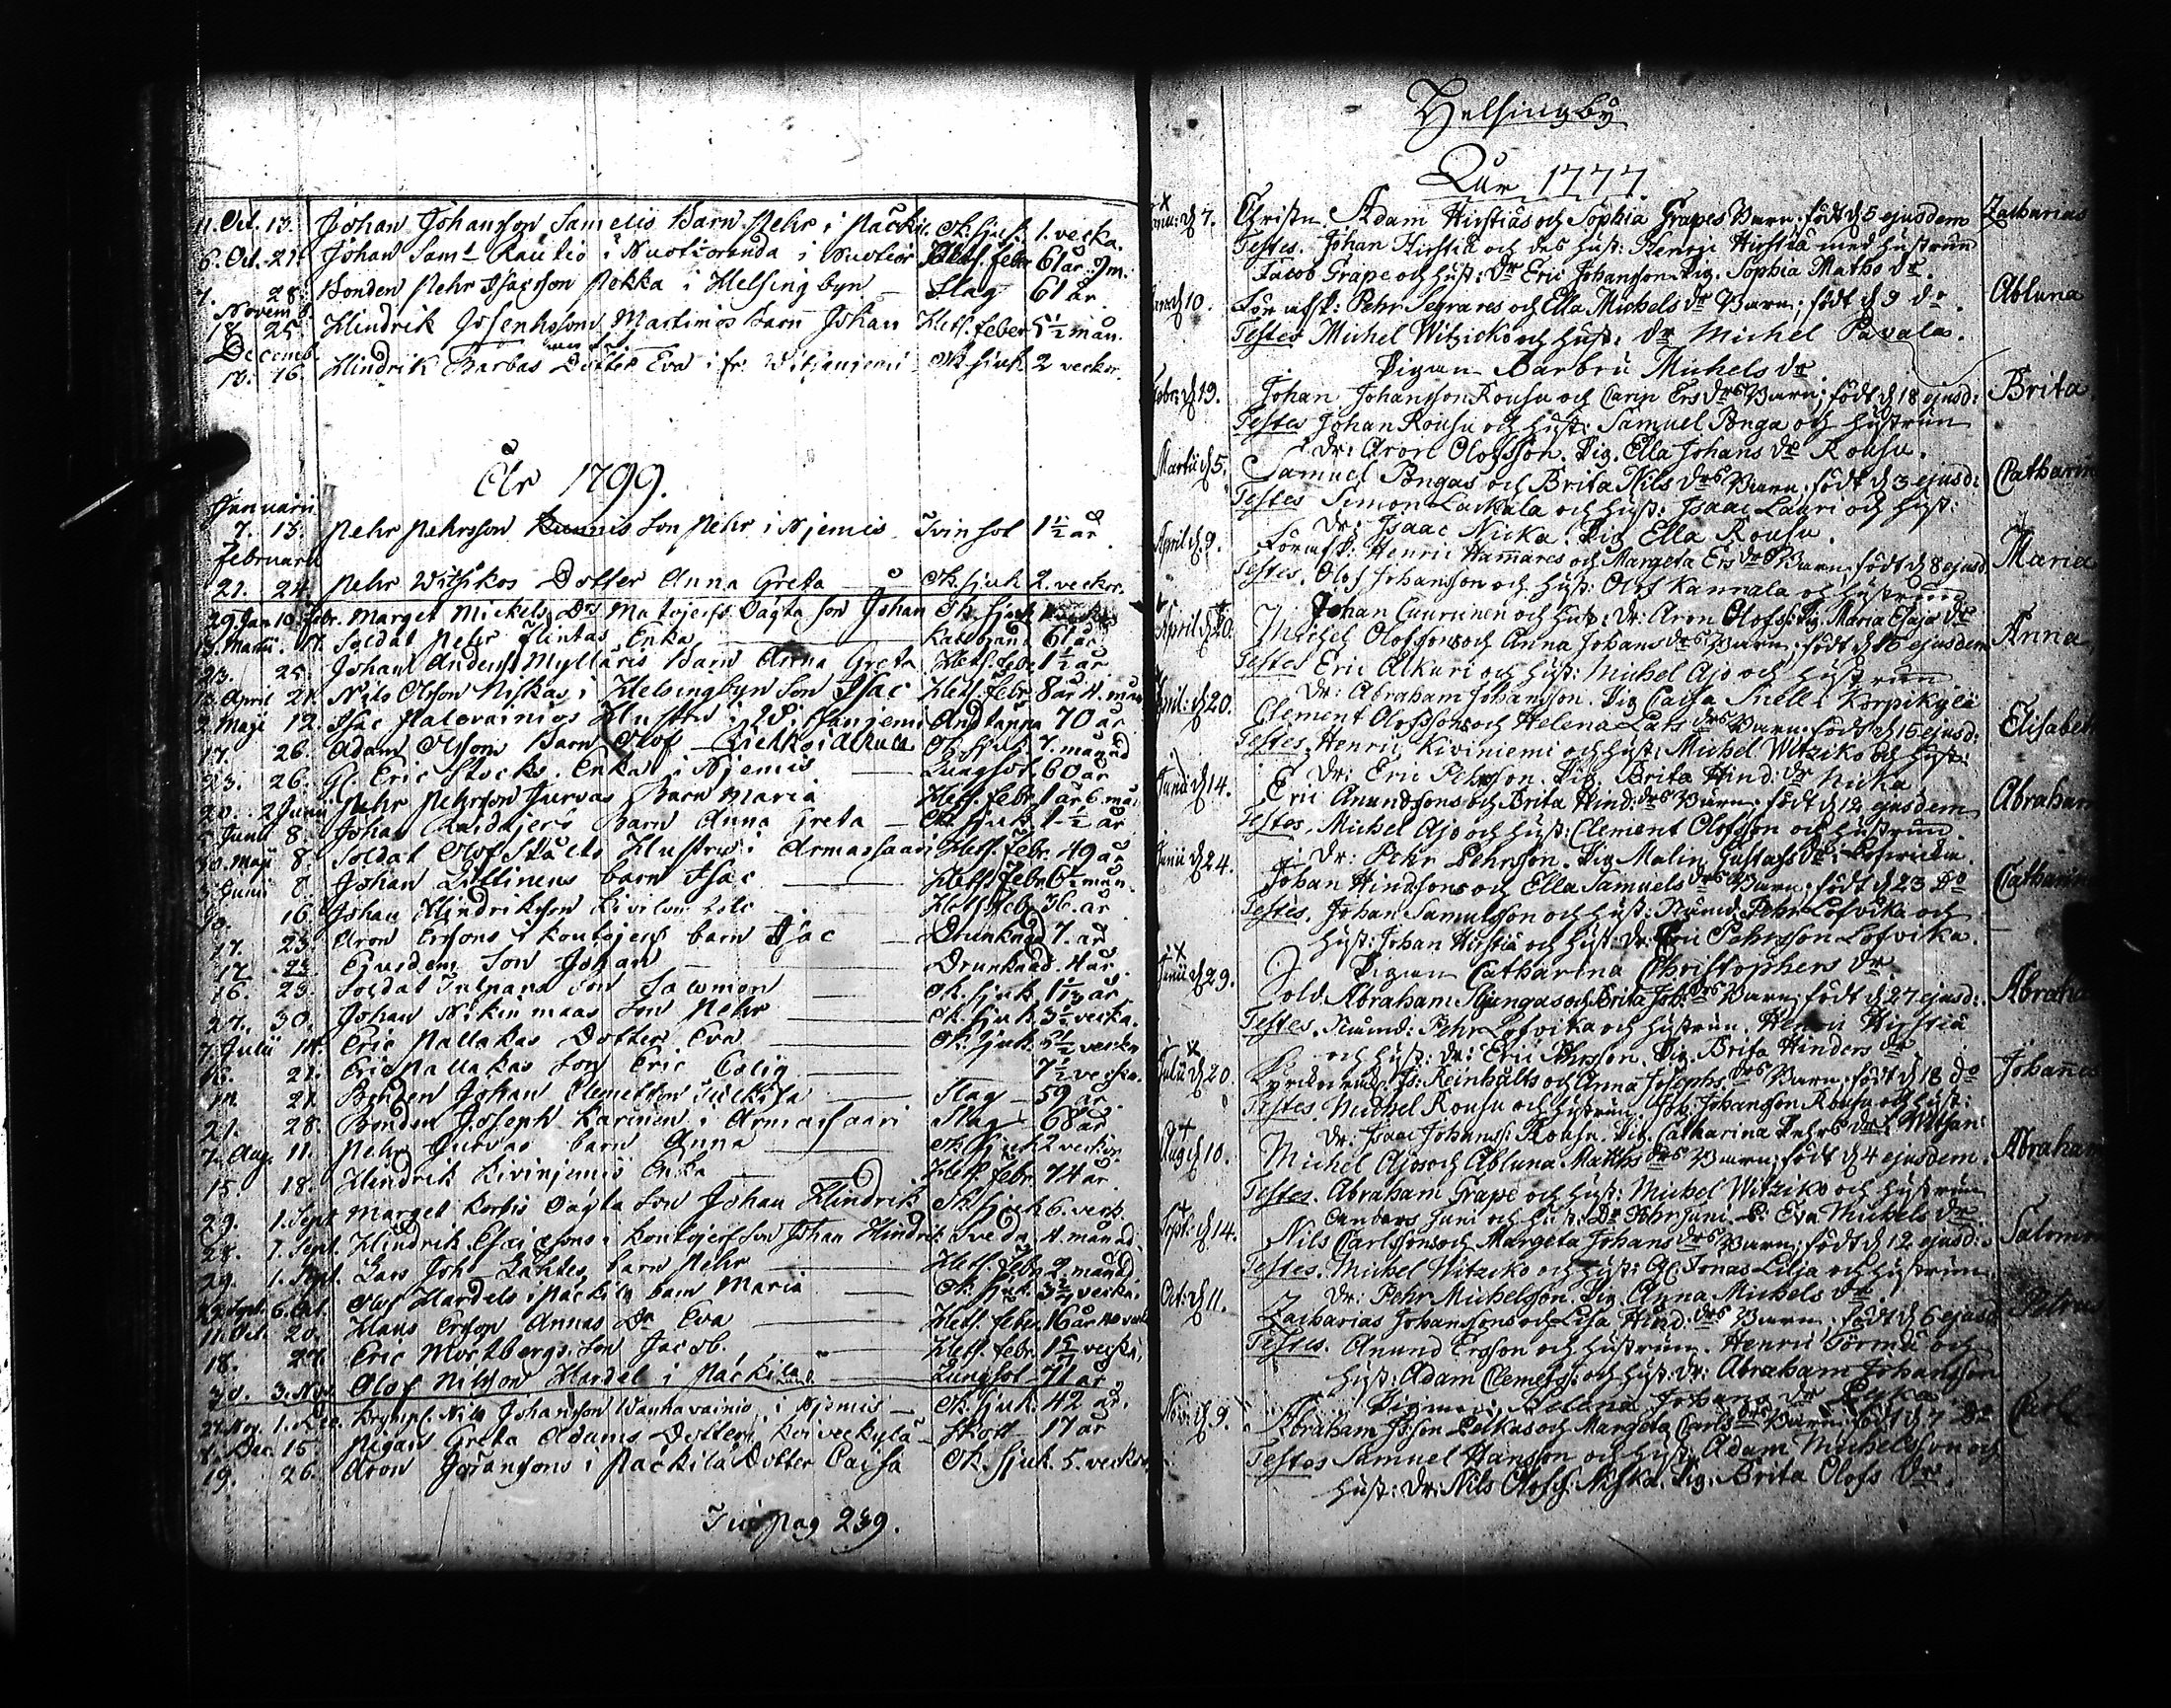 11. Oct. 13. Johan Johansson Samelis Barn Pehr i Päckilä Ok. sjuk. 1. vecka.
6. Oct. 21. Johan Saml Rautio i Nuotioranda i Nuotior Hets. feber 61 år 9 m.
1. 28. Bonden Pehr Isacsson Rokka i Helsingbyn – Slag 61 år.
Novemb.
18. 25. Hindrik Josephssons Martimos barn Johan Hets. feber 5 1/2 mån.
Decemb.
10. 16. Hindrik Barbas Dotter Eva i fr. Witsaniemi Ok. sjuk 2 veckor.
År 1799.
Januarii
7. 13. Pehr Pehrsson Son Pehr i Njemis Tvinsot 1 1/2 år
Februarii
21. 24. Pehr Witsikos Dotter Anna Greta — Ok. sjuk 2. veckor.
29 Jan 10. Febr. Marget Mickels Drs Matojerfs Oägta son Johan Ok. sjuk
13. Martii. 17. Soldat Pehr Flintas Enka — 61 år.
23. 25. Johan Anders Mylläris Barn Anna Greta Hets. febr 1 1/2 år
April 21. Nils Olsson Niskas i Helsingbyn Son Isac Hets. febr. 8 år 4. mån
2 Maji 12. Isac Palovainios Hustru i Andtäppa 70 år
17. 26. Adam Olsson Barn Olof Ok. sjuk 7. månad
23. 26. Gl. Eric Stocks Enka i Njemis — Lungsot. 60 år
20. 2 Junii Pehr Pehrsson Jurvas Barn Maria Hets. febr. 1 år 6. må.
2 Junii 8. Johan Raidajerfs Barn Anna Greta — Ok. sjuk 1 1/2 år
30. Maji 8. Soldat Olof Ståhls Hustru i Armassaari Hets. febr. 49 år
3 Junii 8 Johan barn Isac — Hets. febr 6 1/2 mån.
10. 16. Johan Hindriksson Hets. febr 36. år
17. 23. Aron Erssons i Kontojerfs barn Isac — Drunknad 7. år
17. 23. Ejusdem Son Johan — Drunknad. 4 år.
16. 23. Soldat Tulpans Son Salomon — Ok. sjuk
27. 30. Johan Nikinmaas Son Pehr — Ok. sjuk 3 1/2 vecka.
7. Julii 14. Eric Pallakas Dotter Eva — Ok. sjuk 5 1/2 vecka
16. 21. Eric Pallakas Son Eric — 7 1/2 vecka.
14. 21. Bonden Johan Clemetsson — Slag — 59 år
21. 28. Bonden Joseph Karinen i Armassaari Slag 68 år
7. Aug. 11. Pehr Jurvas barn Anna — Ok. sjuk 2 veckor
15. 18. Hindrik Kiviniemis Enka — Hets. febr. 74 år
29. 1. Sept. Marget Korpis Oägta son Johan Hindrik Ok. sjuk 6. veck
28. 1. Sept. Hindrik Esaiæssons i Kontojerf son Johan Hindrik Sveda 4. månad.
29. 1. Sept. Lars Joh. Lahtes, barn Pehr — Hets. febr. 9 månad
29. Sept. 6. Oct. Olof Hardels i Päckilä barn Maria — Ok. sjuk.
11. Oct. 20. Hans Ersson Annas Dr Eva — Hets. febr. 16 år
18. 27. Eric Mortbergs son Jacob. — Hets. febr.
30. 3. Nov. Olof Nilsson Hardel i Päckilä — Lungsot 71 år.
27. Nov. 1. Dec. Nils Johansson Wanhavainio i Njemis — Ok. sjuk. 42 år.
8. Dec. 15. Pigan Greta Adams Dotter, Koivukylä – Skott 17 år
19. 26. Aron Johanssons i Päckilä Dotter Caisa Ok. sjuk. 5. veckor
pag 239.
Helsingby
Åhr 1777
d 7. Christn. Adam Hirstiäs och Sophia Grapes Barn: födt d 5 ejusdem Zacharias
Testes. Johan Hirstiä och des hust: Henric Hirstiä med hustrun
Jacob Grape och hust: Dr Eric Johansson Pig. Sophia Maths dr.
d 10. Pehr Segrares och Ella Michels drs Barn; födt d 9 do Abluna
Testes Michel Witzicko och hust: dr Michel Pavala.
Pigan Barbru Michels dr
Febr: d 19. Johan Johansson Rousu och Carin Ers drs Barn; födt d 18 ejusd: Brita
Testes Johan Rousu och hust: Samuel Ponga och hustrun
dr: Aron Olofsson. Pig. Ella Johans dr Rousu.
Martii d 5. Samuel Pongas och Brita Nils drs Barn, födt d 3 ejusd: Catharin
Testes Simon Lackala och hust: Isaac Lauri och hust:
dr: Isaac Nicka. Pig Ella Rousu.
April d. 9. Henric Hamares och Margeta Ers drs Barn, födt d 8 ejusd Maria
Testes. Olof Johansson och hust: Olof Kannala och hustrun
Johan Cuurinen och hust: dr: Aron Olofs: Pig. Maria Esaiæ dr
April d 20. Michel Olofssons och Anna Johans drs Barn; födt d 16 ejusdem Anna
Testes Eric Alkuri och hust: Michel Ajo och hustrun
dr: Abraham Johansson. Pig Caisa Snell i Korpikylä
April: d 20. Clement Olofssons och Helena Lars drs Barn. födt d 15 ejusd: Elisabet
Testes. Henric Kiviniemi och hust: Michel Witziko och hust:
dr: Eric Pehrsson. Pig. Brita Hind: dr Nicka
Junii d 14. Eric Anundssons och Brita Hind: drs Barn. födt d 12 ejusdem Abraham
Testes. Michel Ajo och hust: Clement Olofsson och hustrun.
dr: Pehr Pehrsson. Pig Malin Gustafs dr
Junii d 24. Johan Hindssons och Ella Samuels drs Barn: födt d 23 do Catharina
Testes. Johan Samulsson och hust: Nämd: Pehr Lofvika och
hust: Johan Hirstiä och hust: dr: Eric Pehrsson Lofvika.
Pigan Catharina Christophers dr.
Junii d 29. Sold. Abraham och Brita Joh: drs Barn, födt d 27 ejusd: Abraha
Testes. Nämd: Pehr Lofvika och hustrun. Henric Hirstiä
och hust: dr: Eric Pehrsson. Pig. Brita Hinders dr
Julii d 20. Js: Reinholts och Anna Josephs drs Barn: födt d 18 do Johannes
Testes Michel Rousu och hustrun. Joh: Johansson Rousu och hust:
dr: Isaac Johans: Rousu. Pig. Catharina Pehrs dr i Witsan:
Aug d 10. Michel Ajos och Abluna Matths drs Barn; födt d 4 ejusdem Abraham
Testes. Abraham Grape och hust: Michel Witziko och hustrun
Anders Juni och hust: Dr Pehr Juni. P: Eva Mickels dr
Sept: d 14. Nils Carlssons och Margeta Johans drs Barn; födt d 12 ejusd: Salomo
Testes. Michel Witziko och hust: Gl. Jonas Lilja och hustrun
dr: Pehr Michelsson Pig. Anna Michels dr
Oct: d 11. Zacharias Johanssons och Lisa Hind: drs Barn. födt d 6 ejusd Petrus
Testes. Anund Ersson och hustrun. Henric Törmä och
hust: Adam Clemets: och hust: dr: Abraham Johansson
Pigan Helena Johans dr
Nov: d 9. Abraham Js:son Pelkas och Margeta Carls drs Barn: födt d 7 do Carl
Testes Samuel Hansson och hust: Adam Michelsson och
hust: dr: Nils Olofs: Niska. Pig. Brita Olofs dr.